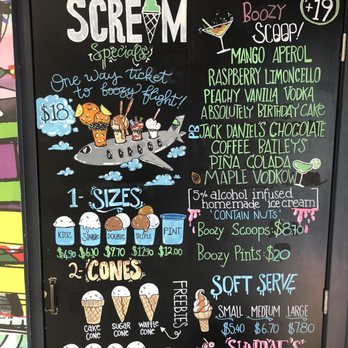 SCREAM
Specials!
One way ticket
to
boozy flight!
$18
1- SIZES
KIDZ
My SINGLE
DOUBLE
TRIPLE
PINT
$6.90
$7.70
$12.90
$12.00
2- CONES
CAKE
CONE
SUGAR
CONE
WAFFLE
CONE
FREEBIES
BOOZY
SCOOP!
+19
MANGO APEROL
RASPBERRY LIMONCELLO
PEACHY VANILLA VODKA
ABSOLUTELY BIRTHDAY CAKE
JACK DANIEL'S CHOCOLATE
COFFEE BAILEY'S
PINA COLADA
MAPLE VODKOW
5% alcohol infused
homemade ice cream
"CONTAIN NUTS"
Boozy Scoops: $8.70
Boozy Pints: $20
SOFT SERVE
SMALL MEDIUM LARGE
$5.40 $6.70 $7.80
SUNDAE'S